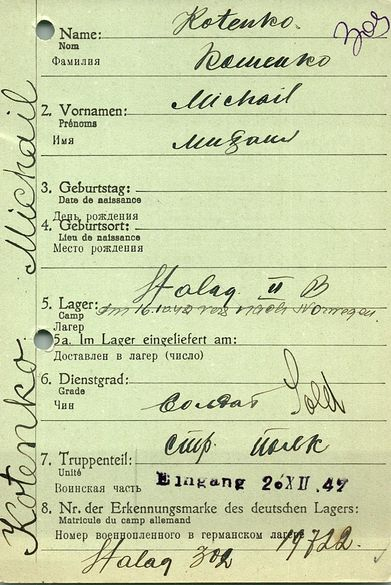 Kotenko
302
1. Name:
Nom
Фамилия
Котенко
2. Vornamen:
Michail
Prénoms
Имя
Михаил
3. Geburtstag:
Date de naissance
День рождения
4. Geburtsort:
Lieu de naissance
Место рождения
Stalag II B
5. Lager:
Camp
Лагерь
nach Norwegen.
5a. Im Lager eingeliefert am:
Доставлен в лагер (число)
6. Dienstgrad:
Grade
Чин
Солдат Sold
7. Truppenteil:
стр. полк
Unité
Воинская часть
Eingang 26 XII. 42
8. Nr. der Erkennungsmarke des deutschen Lagers:
Matricule du camp allemand
Номер военнопленного в германском лагере
19722.
Stalag 302
Kotenko Michail